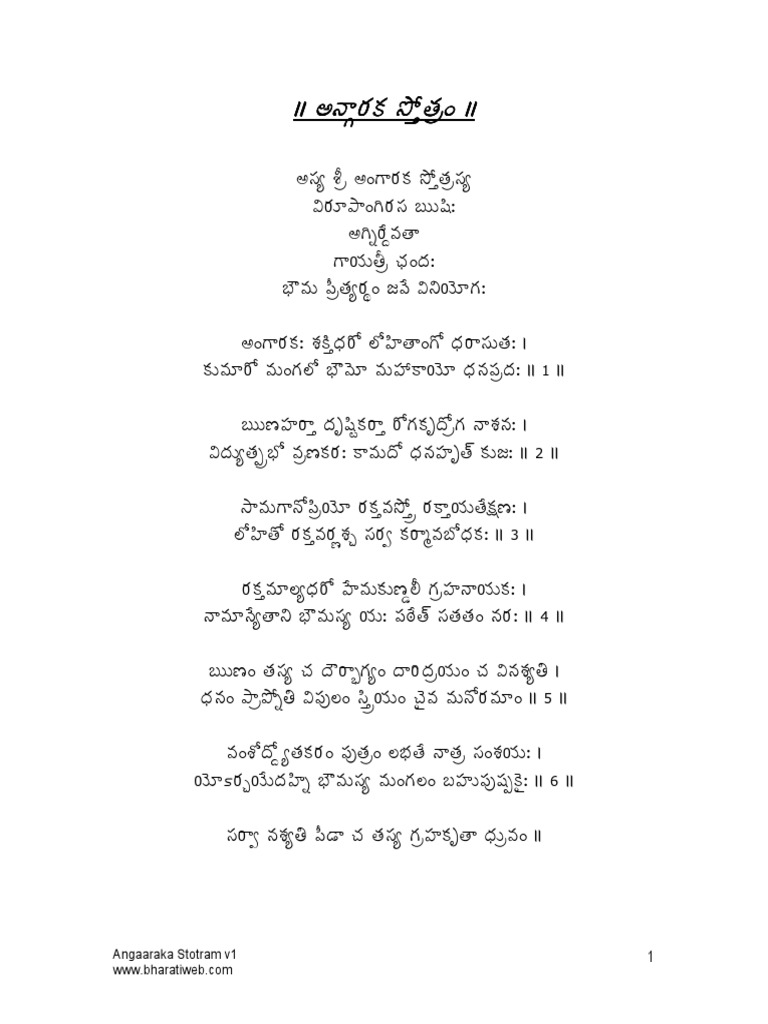 ॥ అన్గారక స్తోత్రం ॥
అస్య శ్రీ అంగారక స్తోత్రస్య
విరూపాంగిరస ఋషిః
అగ్నిర్దేవతా
గాయత్రీ ఛందః
భౌమ ప్రీత్యర్థం జపే వినియోగః
అంగారకః శక్తిధరో లోహితాంగో ధరాసుతః ।
కుమారో మంగలో భౌమో మహాకాయో ధనప్రదః ॥ 1 ॥
ఋణహర్తా దృష్టికర్తా రోగకృద్రోగ నాశనః ।
విద్యుత్ప్రభో వ్రణకరః కామదో ధనహృత్ కుజః ॥ 2 ॥
సామగానోప్రియో రక్తవస్త్రో రక్తాయతేక్షణః ।
లోహితో రక్తవర్ణశ్చ సర్వ కర్మావబోధకః ॥ 3 ॥
రక్తమాల్యధరో హేమకుణ్డలీ గ్రహనాయకః ।
నామాన్యేతాని భౌమస్య యః పఠేత్ సతతం నరః ॥ 4 ॥
ఋణం తస్య చ దౌర్భాగ్యం దారిద్రయం చ వినశ్యతి ।
ధనం ప్రాప్నోతి విపులం స్త్రియం చైవ మనోరమాం ॥ 5 ॥
వంశోద్ద్యోతకరం పుత్రం లభతే నాత్ర సంశయః ।
యోఽర్చయేదహ్ని భౌమస్య మంగలం బహుపుష్పకైః ॥ 6 ॥
సర్వా నశ్యతి పీడా చ తస్య గ్రహకృతా ధ్రువం ॥
Angaaraka Stotram v1
www.bharatiweb.com
1